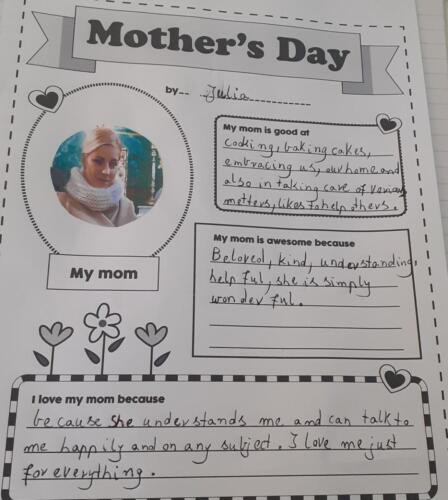 Mother's Day
by Julia
My mom is good at
cooking, baking cakes,
embracing us, our home and
also in taking care of various
metters, likes to help others.
My mom
My mom is awesome because
Beloved, kind, understanding,
help ful, she is simply
won der ful.
I love my mom because
be cause she understands me and can talk to
me happily and on any subject. I love me just
for everything.